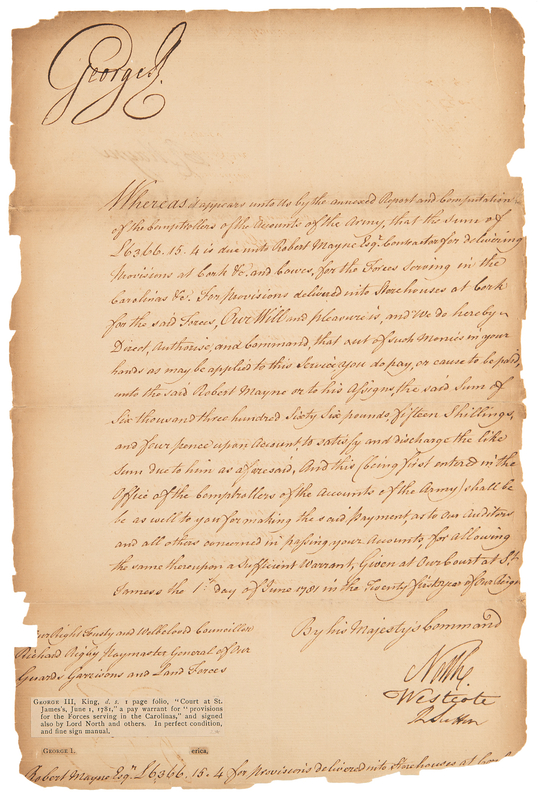 George R.
Whereas it appears unto Us by the annexed Report and Computation
of the Comptrollers of the Accounts of the Army, that the Sum of
£6366.15.4 is due unto Robert Mayne Esq. Contractor for delivering
Provisions at Cork &c. and Cowes, for the Forces Serving in the
Carolinas &c. For provisions delivered into Storehouses at Cork
for the said Forces, Our Will and pleasure is, and We do hereby
Direct, Authorise, and Command, that out of such Monies in your
hands as may be applied to this Service, you do pay, or cause to be paid,
unto the said Robert Mayne or to his Assigns, the said Sum of
Six thousand three hundred Sixty Six pounds, fifteen Shillings,
and four pence upon Account, to satisfy and discharge the like
Sum due to him as aforesaid, And this (being first entered in the
Office of the Comptrollers of the Accounts of the Army) shall be
be as well to you for making the said Payment, as to our Auditors
and all others concerned in passing your Accounts, for allowing
the same thereupon a Sufficient Warrant, Given at Our Court at St.
James's the 1st day of June 1781 in the Twenty first year of Our Reign
By his Majesty's Command
Our Right Trusty and Welbeloved Councillor
Richard Rigby Paymaster General of Our
Guards Garrisons and Land Forces
North
Westcote
GEORGE III, King, d. s. 1 page folio, "Court at St.
James's, June 1, 1781," a pay warrant for "provisions
for the Forces serving in the Carolinas," and signed
also by Lord North and others. In perfect condition,
and fine sign manual.
GEORGE I. erica,
Robert Mayne Esqr. £6366.15.4 for provisions delivered into Storehouses at